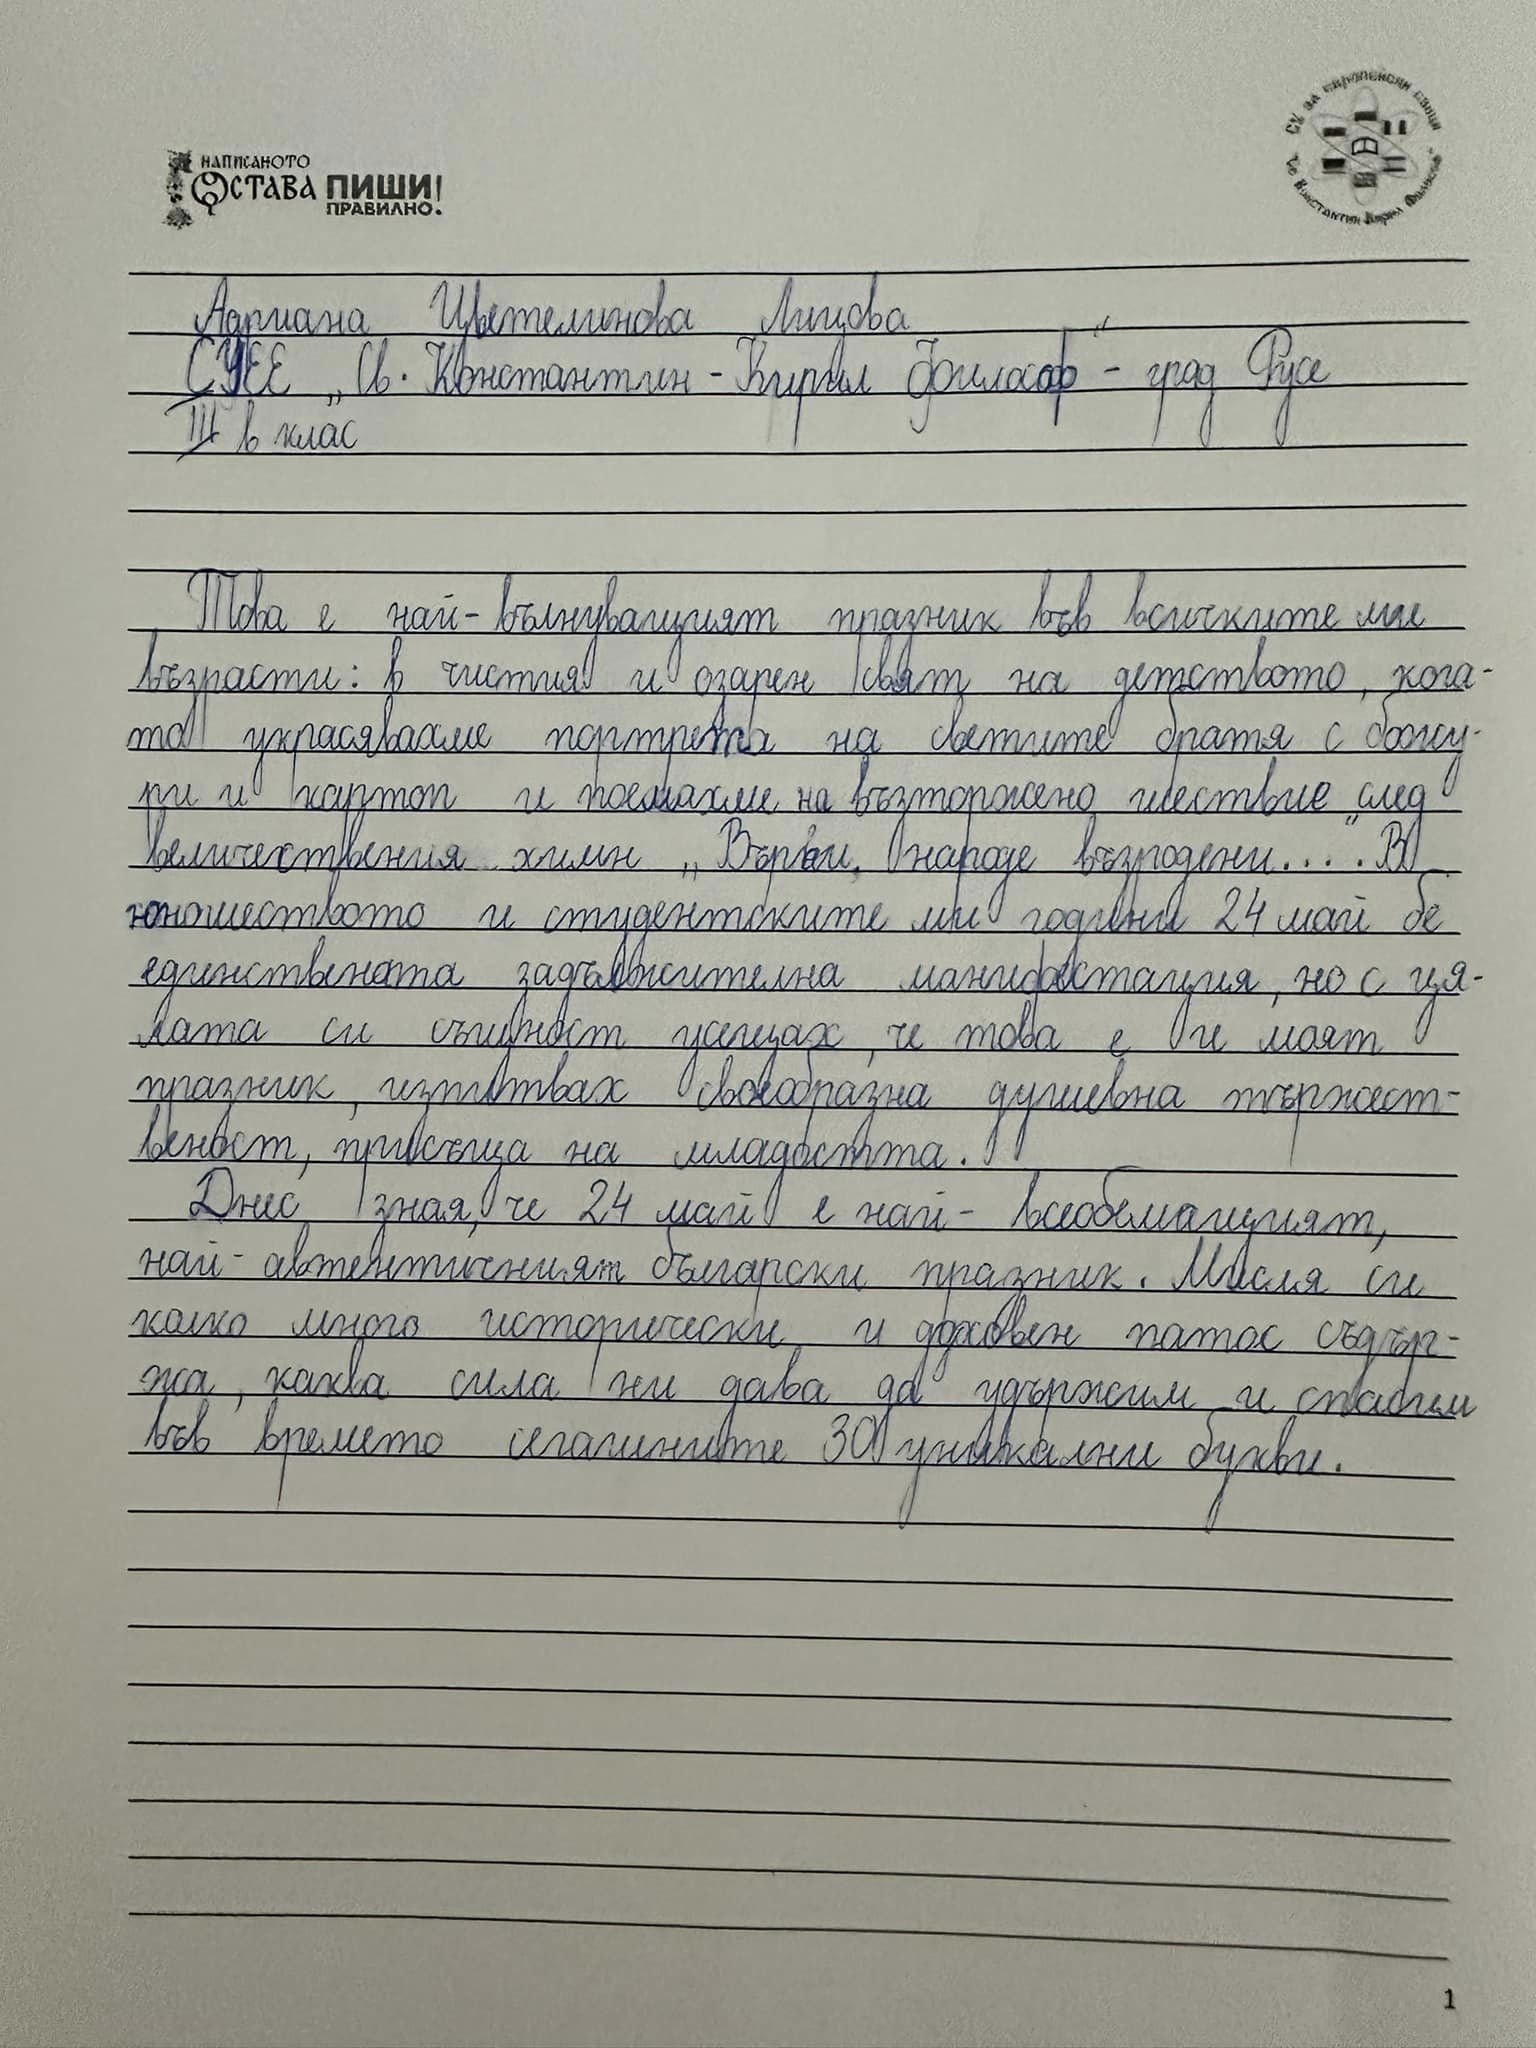 НАПИСАНОТО
ОСТАВА ПИШИ
ПРАВИЛНО!
СУ ЗА ЕВРОПЕЙСКИ ЕЗИЦИ
Константин Кирил Философ
Адриана Цветелинова Лицова
СУЕЕ „Св. Константин - Кирил Философ“ - град Русе
III в клас
Това е най-вълнуващият празник във всичките ми
възрасти: в чистия и озарен свят на детството, кога-
то украсявахме портрета на светите братя с божу-
ри и картоп и поемахме на възторжено шествие след
величествения химн „Върви, народе възродени....“. В
юношеството и студентските ми години 24 май бе
единствената задължителна манифестация, но с ця-
лата си същност усещах, че това е и моят
празник, изпитвах своеобразна душевна тържест-
веност, присъща на младостта.
Днес зная, че 24 май е най- всеобемащият,
най- автентичният български празник. Мисля си
колко много исторически и духовен патос съдър-
жа, каква сила ни дава да удържим и спасим
във времето сегашните 30 уникални букви.
1